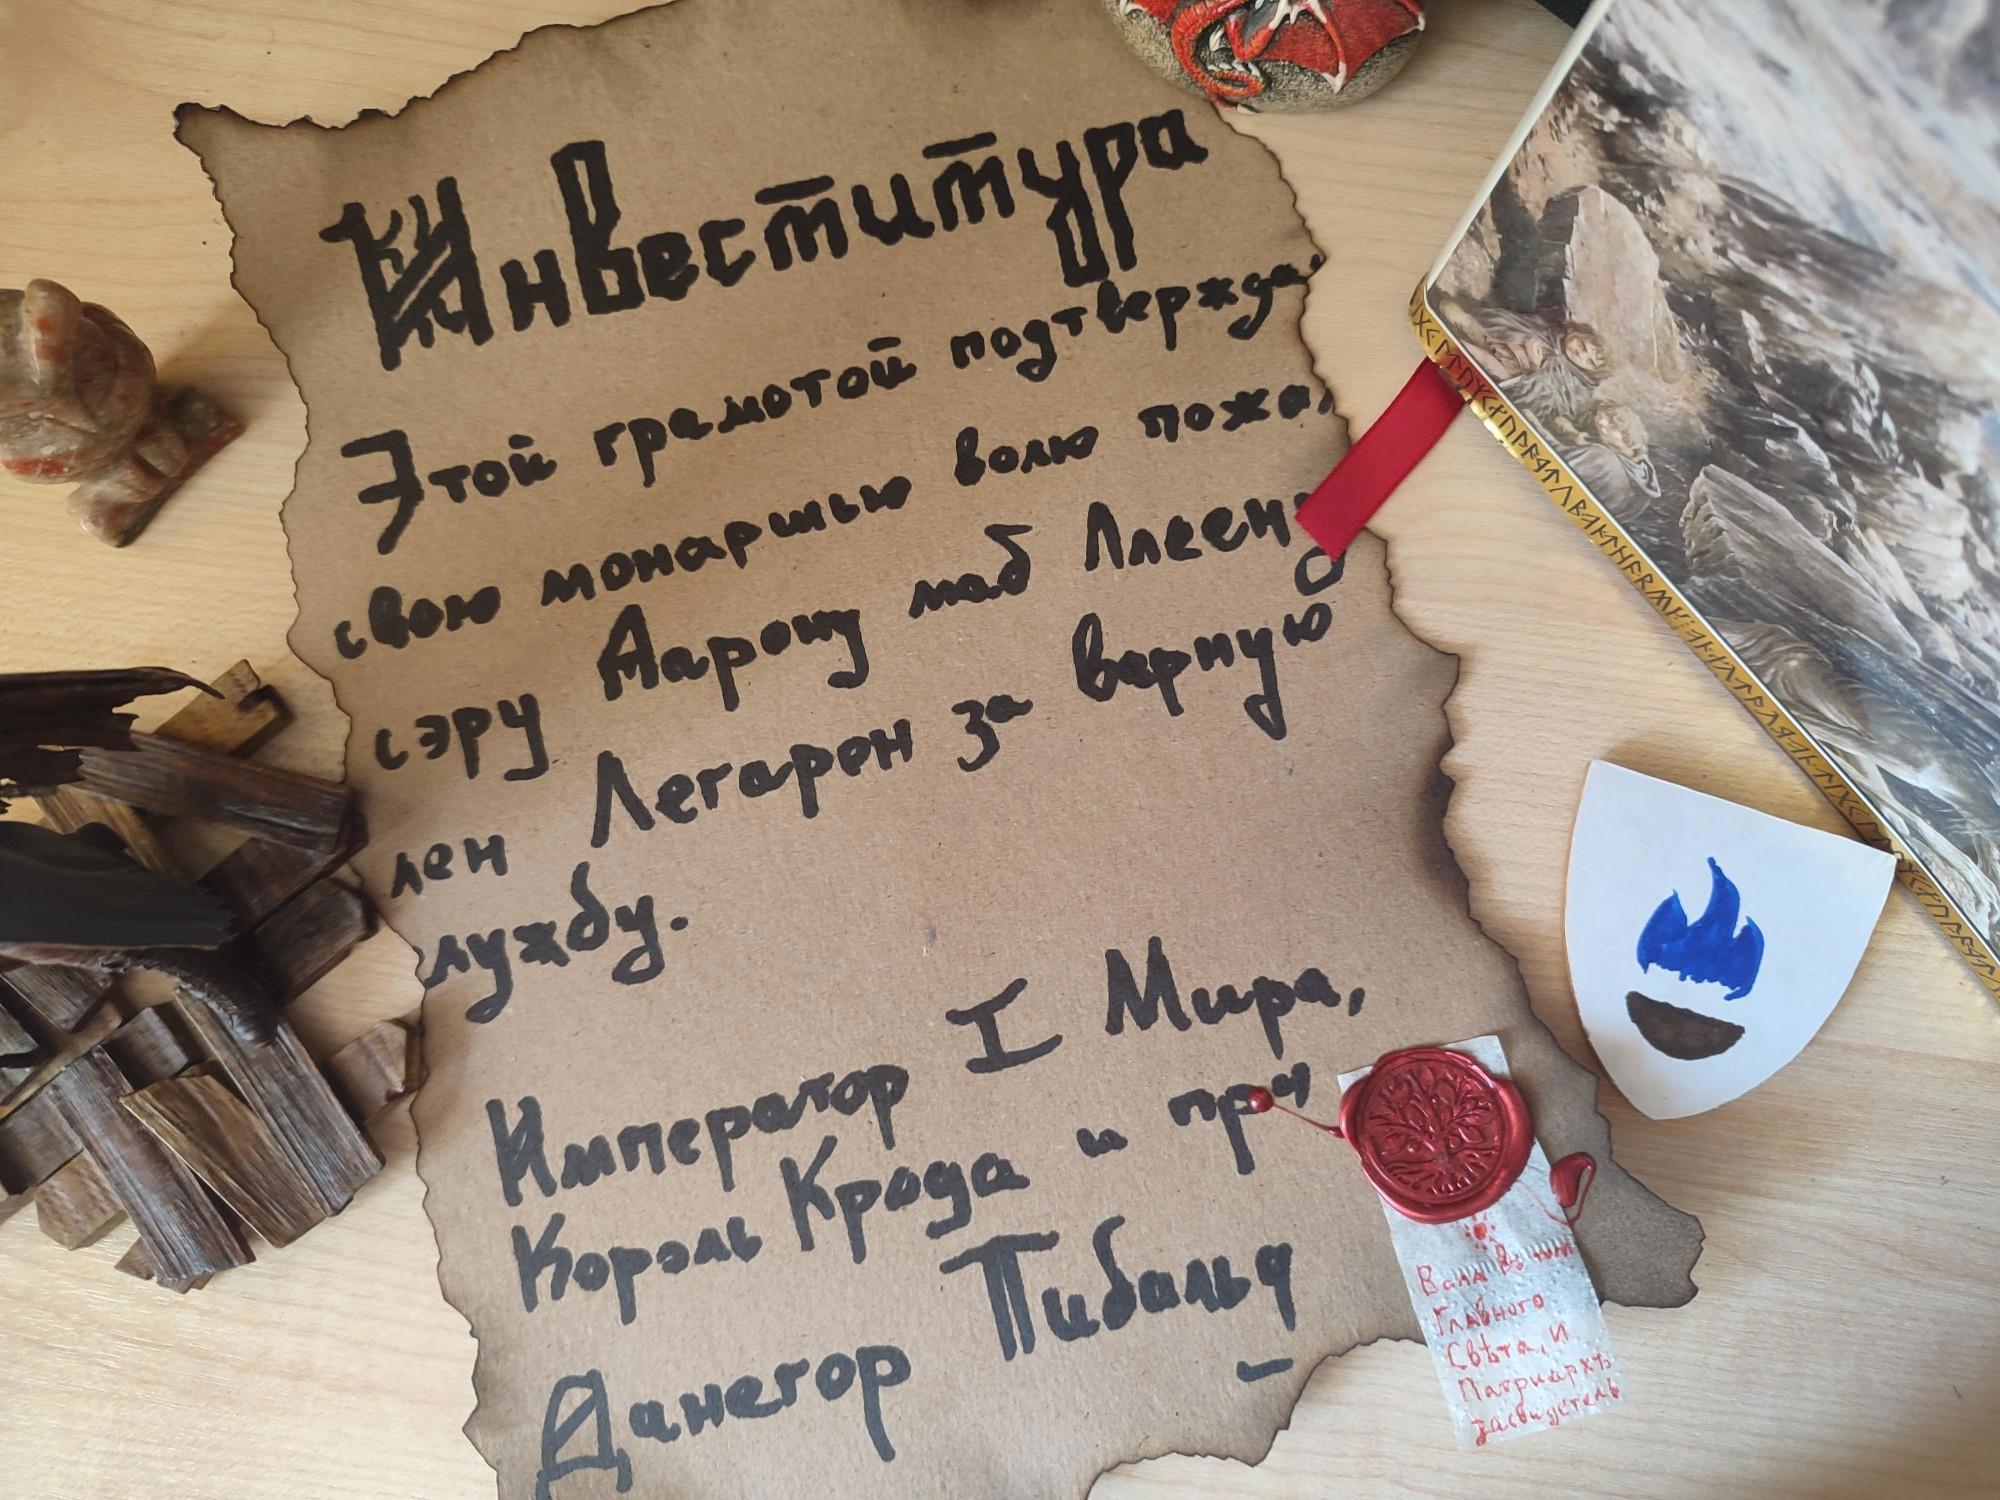 Инвеститура
Этой грамотой подтвержда
свою монаршью волю пожа
сэру Аарону маб Ллеену
лен Легарон за верную
службу.
Император I Мира,
Король Крода и при
Данегор Пибальд
Главного
Свѣта, и
Патриархъ
засвидетель